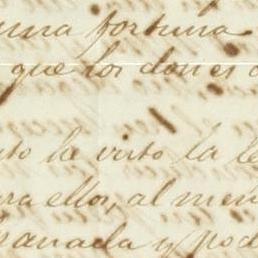 una fortuna
que los dones d
to he visto la le
ra ellos, al men
Granada y pod